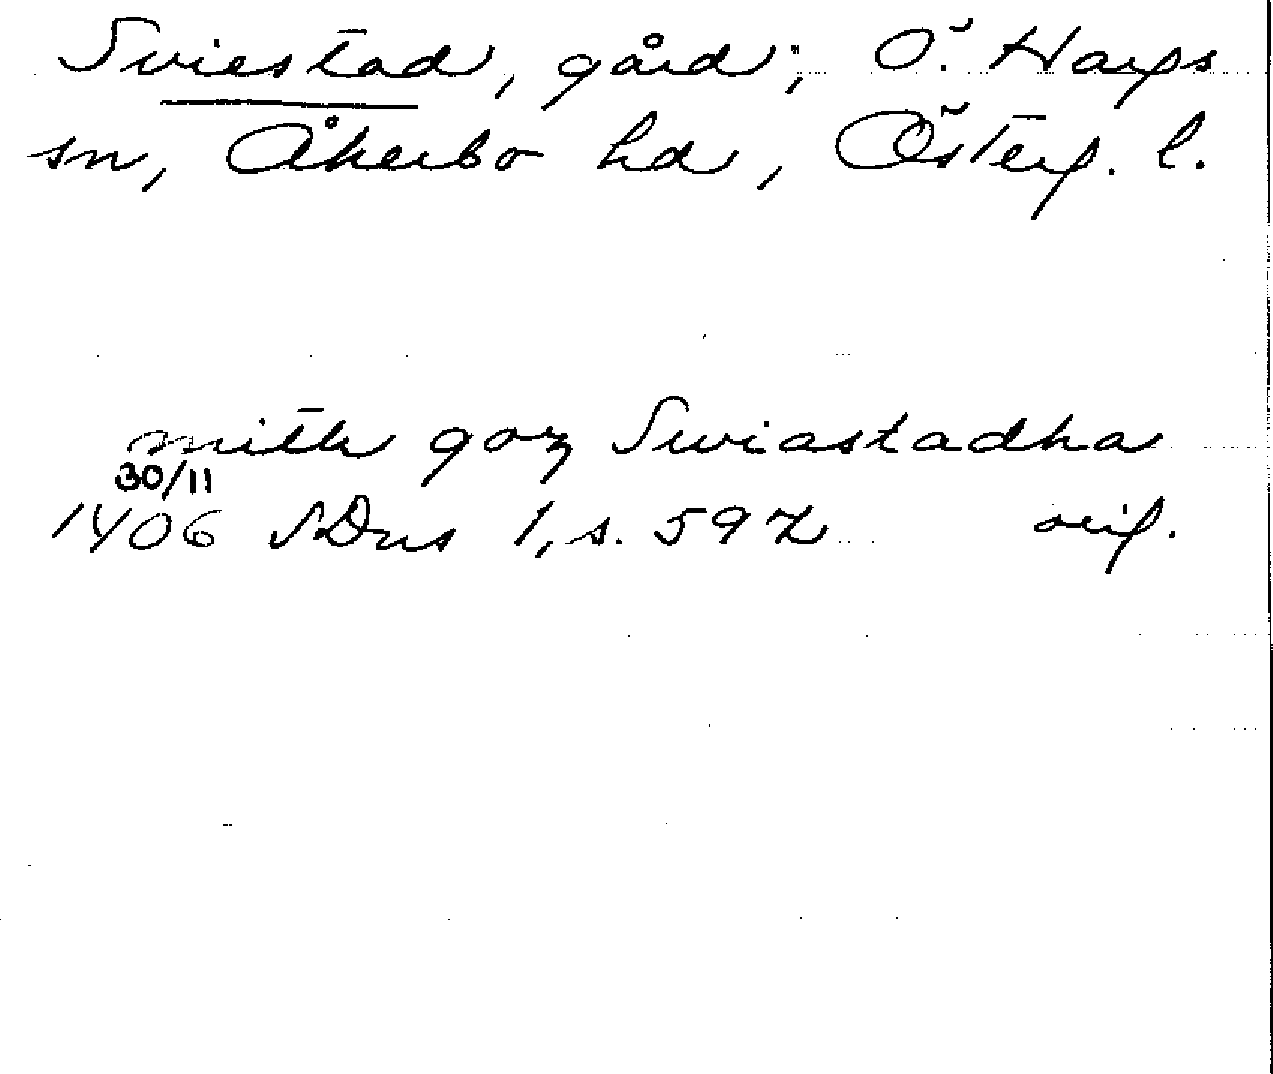 Sviestad, gård; Ö. Hargs
sn, Åkerbo hd, Österg. l.
mith goz Swiastadha
30/11
1406 SDns 1, s. 592 orig.